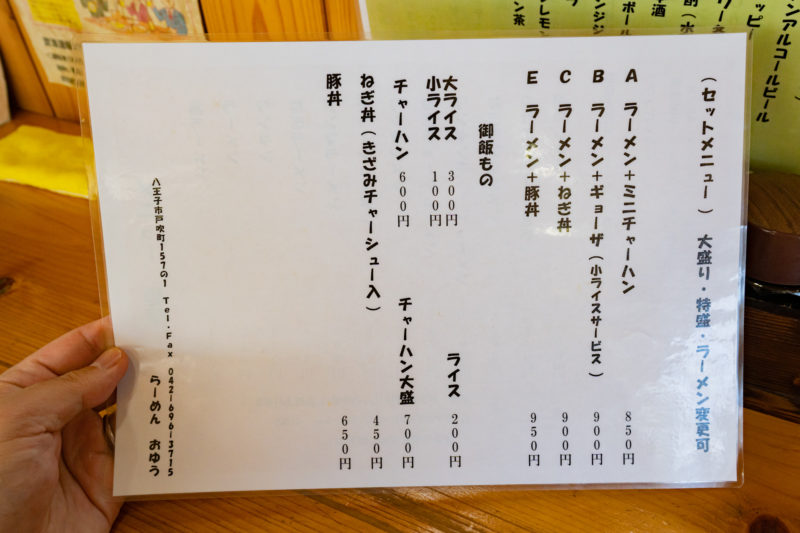 (セットメニュー) 大盛り・特盛・ラーメン変更可
A ラーメン+ミニチャーハン 850円
B ラーメン+ギョーザ(小ライスサービス) 900円
C ラーメン+ねぎ丼 900円
E ラーメン+豚丼 950円
御飯もの
大ライス 300円 ライス 200円
小ライス 100円
チャーハン 600円 チャーハン大盛 700円
ねぎ丼(きざみチャーシュー入) 450円
豚丼 650円
八王子市戸吹町157の1 Tel・Fax 042-696-3715
らーめん おゆう
ンアルコールビール
ッピー